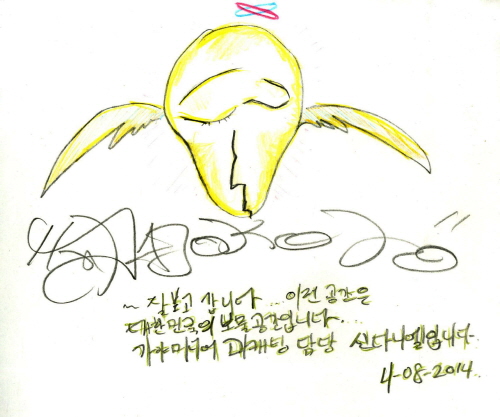 ~ 잘보고 갑니다 ... 이런 공간은
대한민국의 보물공간입니다...
가야미디어 마케팅 담당 신다니엘입니다
4-08-2014